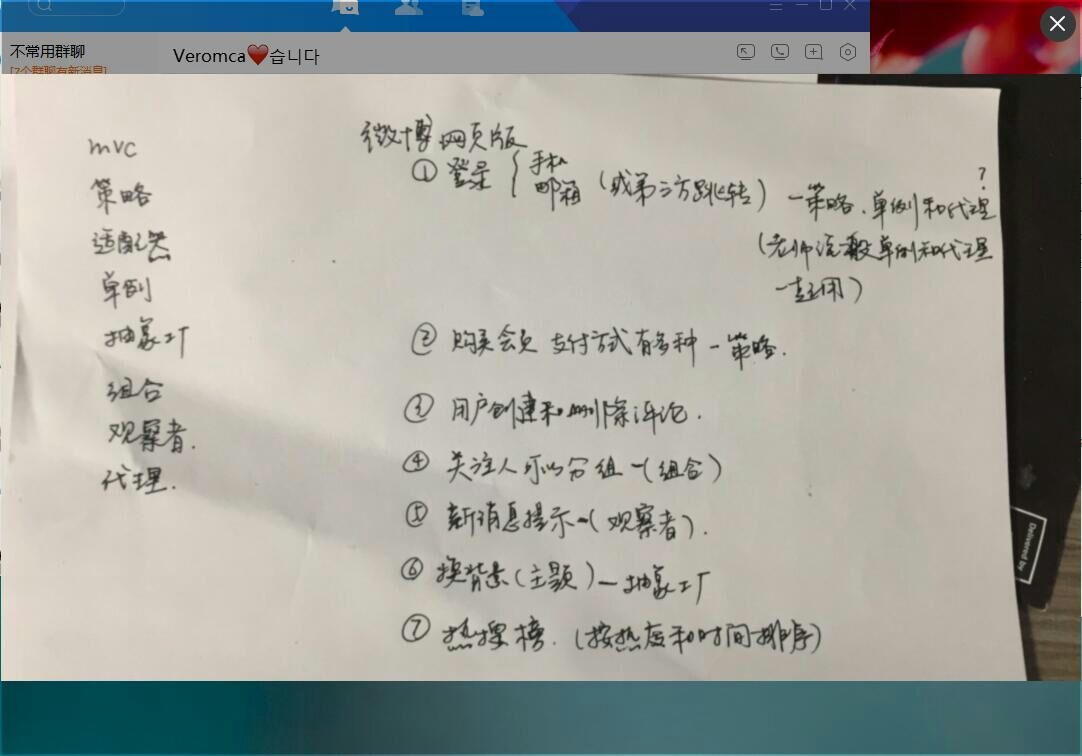 不常用群聊
[7个群聊有新消息]
Veromca❤️습니다
mvc
策略
适配器
单例
抽象工厂
组合
观察者.
代理.
微博网页版
① 登录 { 手机 邮箱 (或第三方跳转) — 策略、单例和代理 ?
(老师说一般单例和代理
一起用)
② 购买会员 支付方式有多种 — 策略.
③ 用户创建和删除评论.
④ 关注人可以分组 — (组合)
⑤ 新消息提示 — (观察者).
⑥ 换背景(主题) — 抽象工厂
⑦ 热搜榜. (按热度和时间排序)
Delivered by